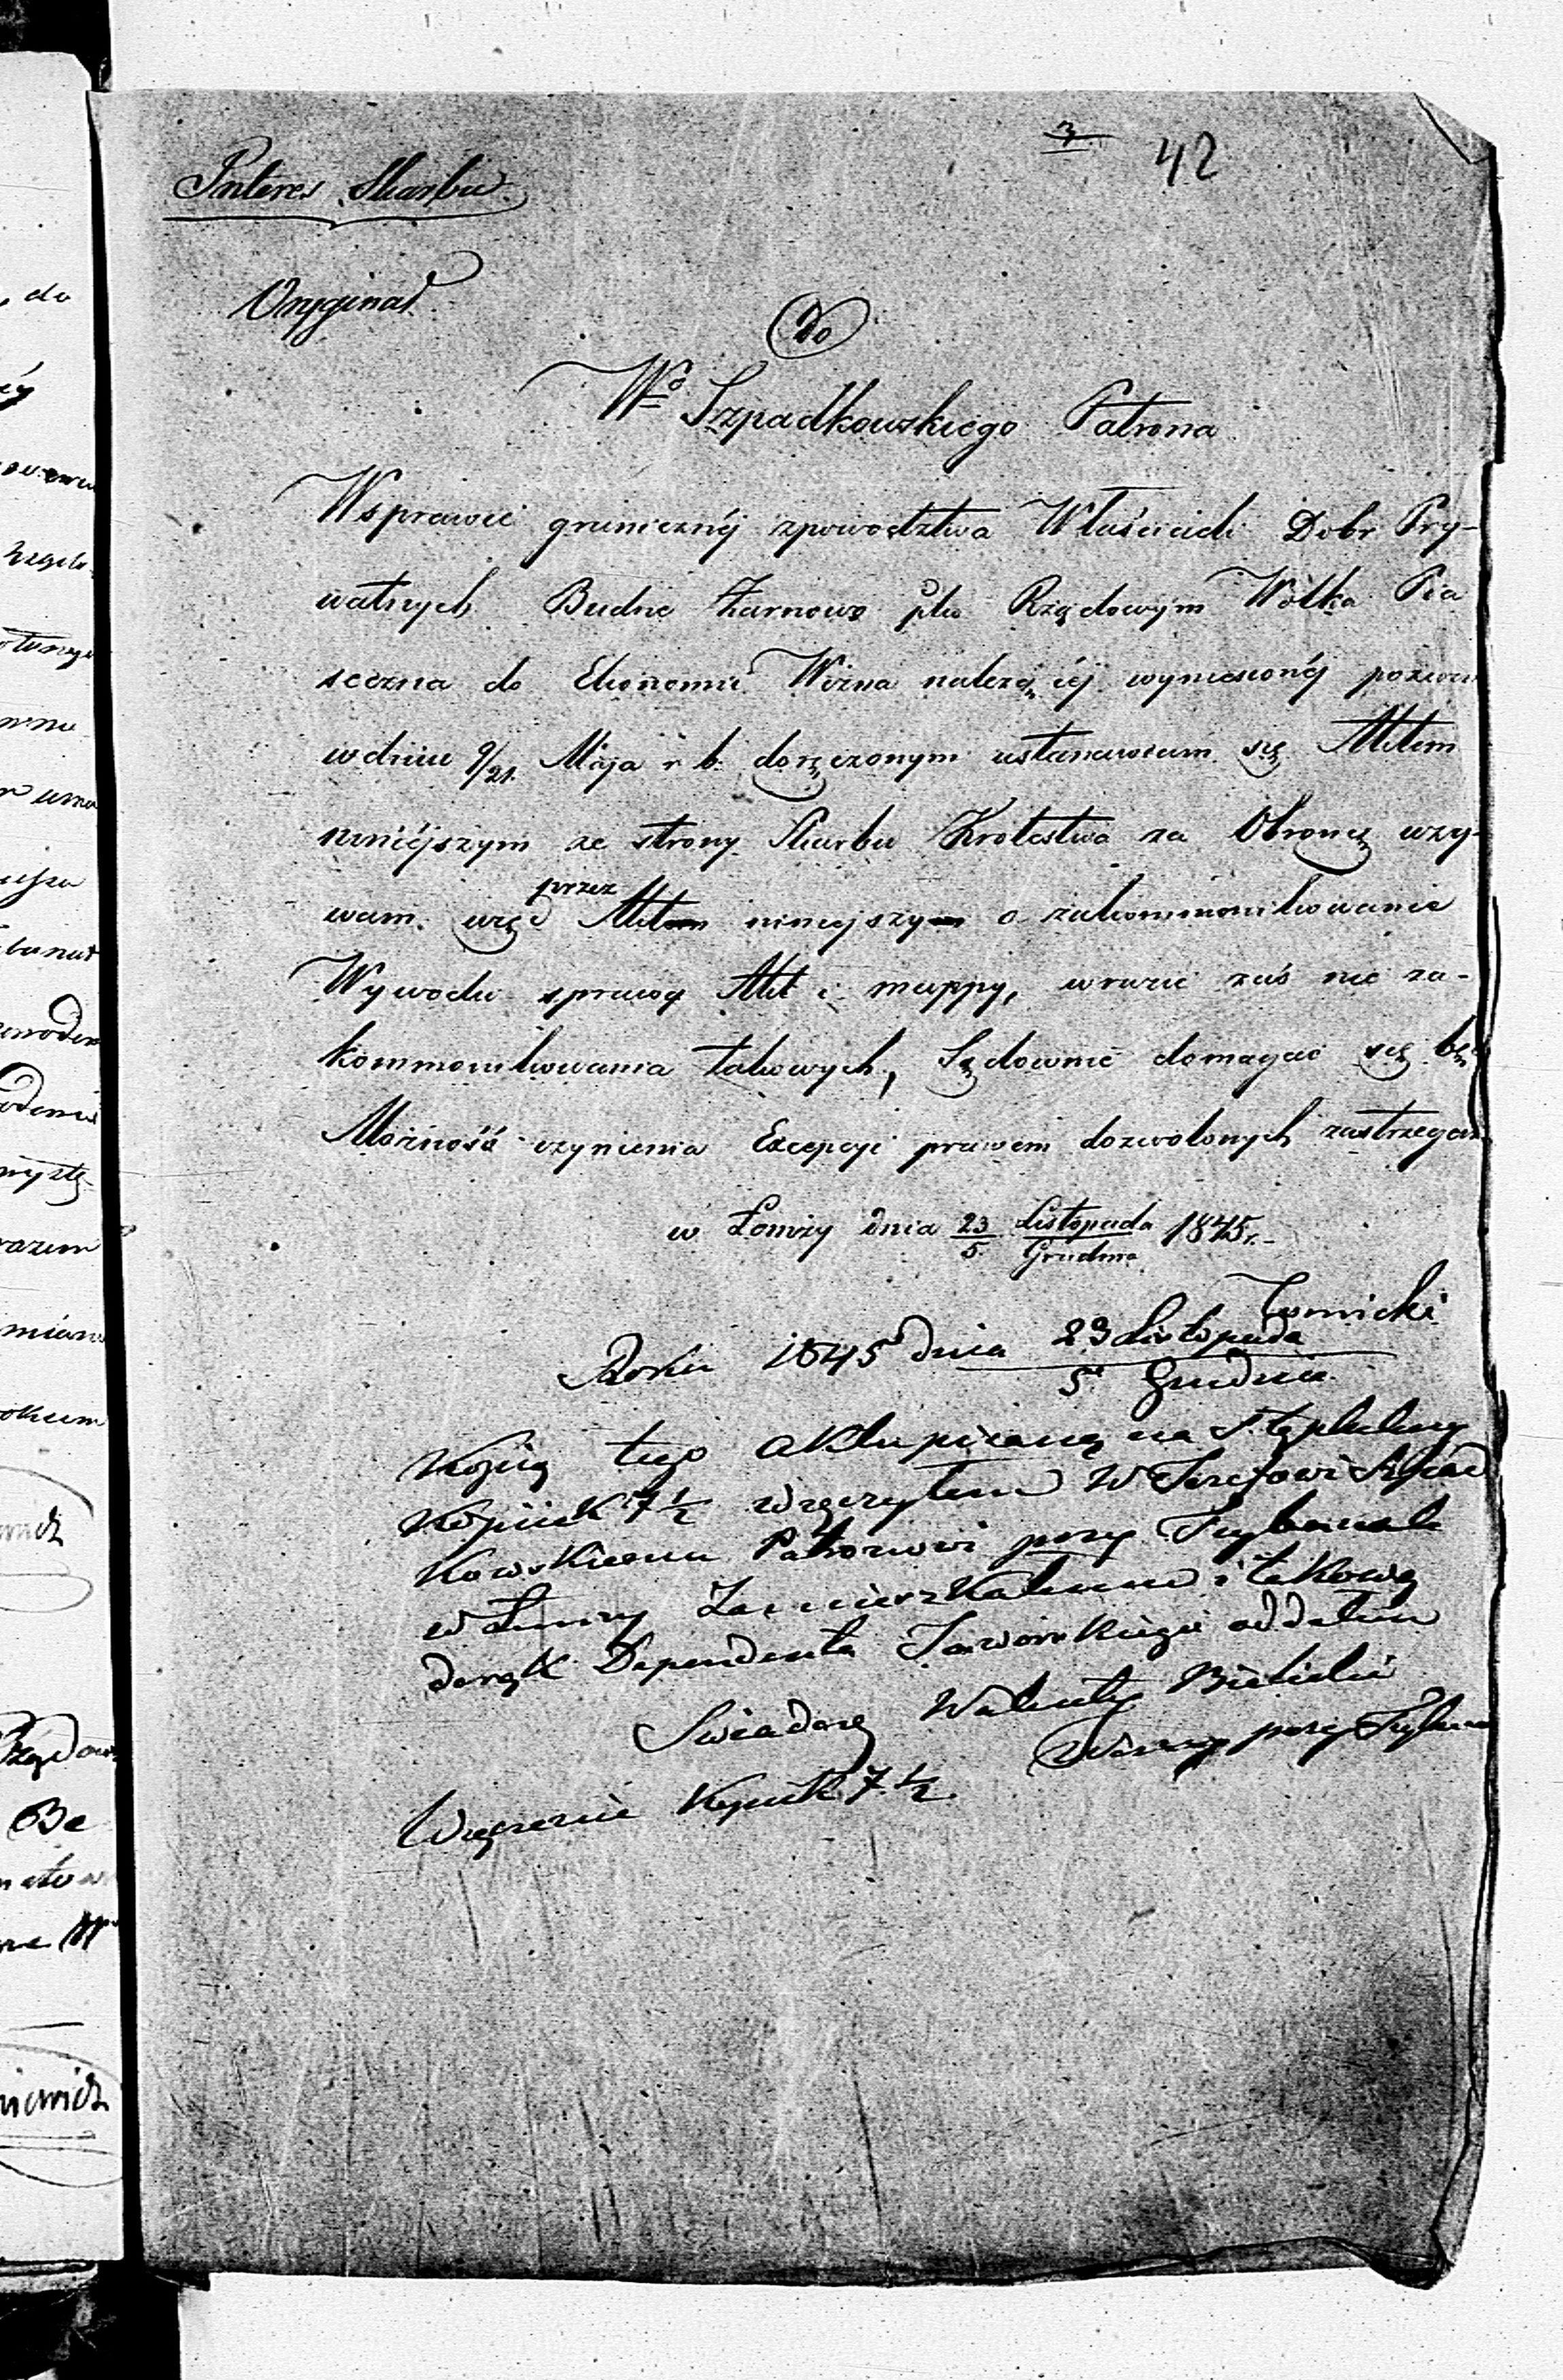 3 42
Interes Skarbu
Oryginał
do
Wo Szpadkowskiego Patrona
Wsprawie granicznéj zpowodztwa Właścicieli Dobr Pry-
watnych Budne Żarnowo płu Rządowym Wólka Pia
seczna do Ekonomii Wizna należącéj wyniesionéj pozwem
wdniu 9/21 Maja r b. doręczonym ustanawiam się Aktem
niniéjszym ze strony Skarbu Krolestwa za Obroncę wzy-
wam. więc przez Akt niniejszy o zakommonikowanie
Wywodu sprawy Akt i mappy, wrazie zaś nie za-
kommonikowania takowych, Sądownie domagać się będę
Możność czynienia Excepcyi prawem dozwolonych zastrzegam
w Łomży dnia 23/5 Listopada/Grudnia 1845 r.
Tomicki
Roku 1845 dnia 23 Listopada
5 Grudnia
Kopią tego aktu pisaną na Stęplu ceny
Kopiiek 7 1/2 wręczyłem W Jozefowi Szpad
kowskiemu Patronowi przy Trybunale
w Łomży Zamieszkałemu i takową
dorąk Dependenta Jaworskiego oddałem
Swiadczę Walenty Bielicki
Woźny przy Trybuna
Wręczenie Kopiiek 7 1/2